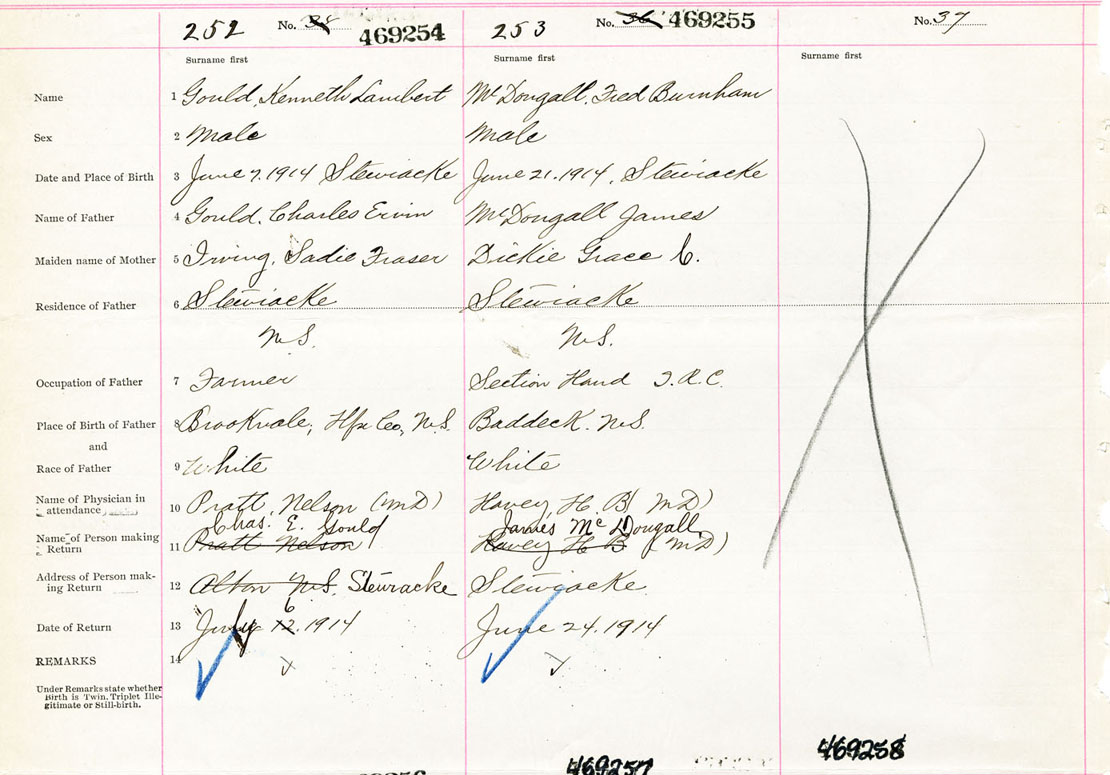 252 No. 469254 253 No. 36 469255 No. 37
Surname first Surname first Surname first
Name 1 Gould, Kenneth Lambert McDougall, Fred Burnham
Sex 2 Male Male
Date and Place of Birth 3 June 7. 1914 Stewiacke June 21. 1914, Stewiacke
Name of Father 4 Gould, Charles Ervin McDougall James
Maiden name of Mother 5 Irving, Sadie Fraser Dickie Grace C.
Residence of Father 6 Stewiacke Stewiacke
N.S. N.S.
Occupation of Father 7 Farmer Section Hand I.R.C.
Place of Birth of Father 8 Brookvale, Hfx Co, N.S. Baddeck. N.S.
and
Race of Father 9 White White
Name of Physician in attendance 10 Pratt, Nelson (MD) Havey, H. B (MD)
Chas. E. Gould James McDougall
Name of Person making Return 11 Pratt Nelson Havey H B (MD)
Address of Person making Return 12 Alton N.S. Stewiacke Stewiacke
6
Date of Return 13 July 12. 1914 June 24. 1914
REMARKS 14
Under Remarks state whether
Birth is Twin, Triplet Ille-
gitimate or Still-birth.
469257 469258